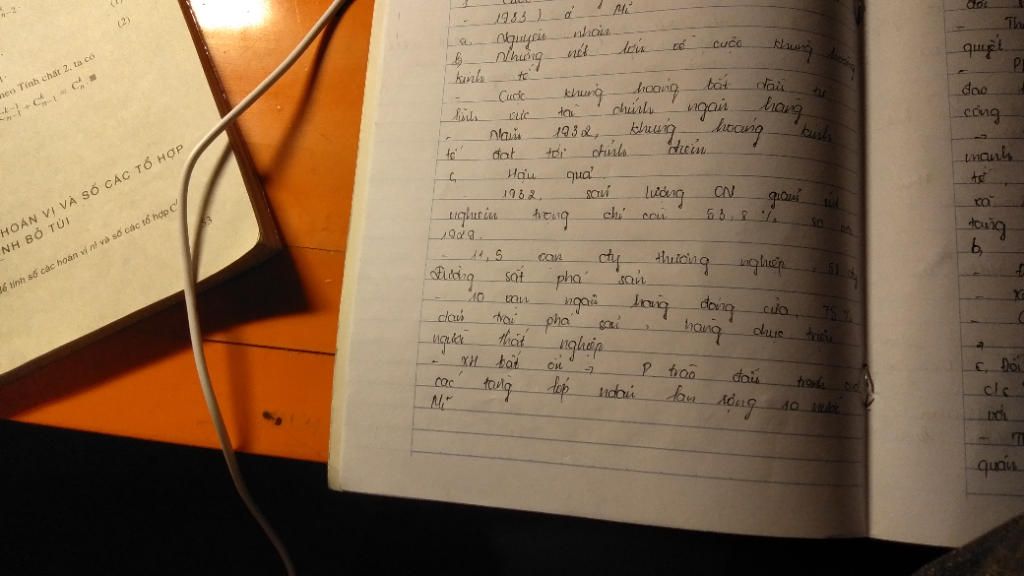 (1)
(2)
heo Tính chất 2, ta có
HOÁN VỊ VÀ SỐ CÁC TỔ HỢP
NH BỎ TÚI
để tính số các hoán vị n! và số các tổ hợp
53
- 1933) ở Mĩ
a. Nguyên nhân
b, Những nét lớn về cuộc khủng hoảng
kinh tế
- Cuộc khủng hoảng bắt đầu từ
lĩnh vực tài chính ngân hàng
- Năm 1932, khủng hoảng kinh
tế đạt tới đỉnh điểm
c, Hậu quả
- 1932, sản lượng CN
nghiêm trọng chỉ còn 53,8 % so với
1929.
- 11,5 vạn cty thương nghiệp, 58 cty
Đường sắt phá sản
- 10 vạn ngân hàng đóng cửa, 75 %
dân trại phá sản, hàng chục triệu
người thất nghiệp
- XH bất ổn → P trào đấu tranh
các tầng lớp nhân lan rộng
Mĩ
quyết
- P
đạo
công
→
mạnh
tế
xã
tăng
b,
c, Đối
c/c
với
- T
quân